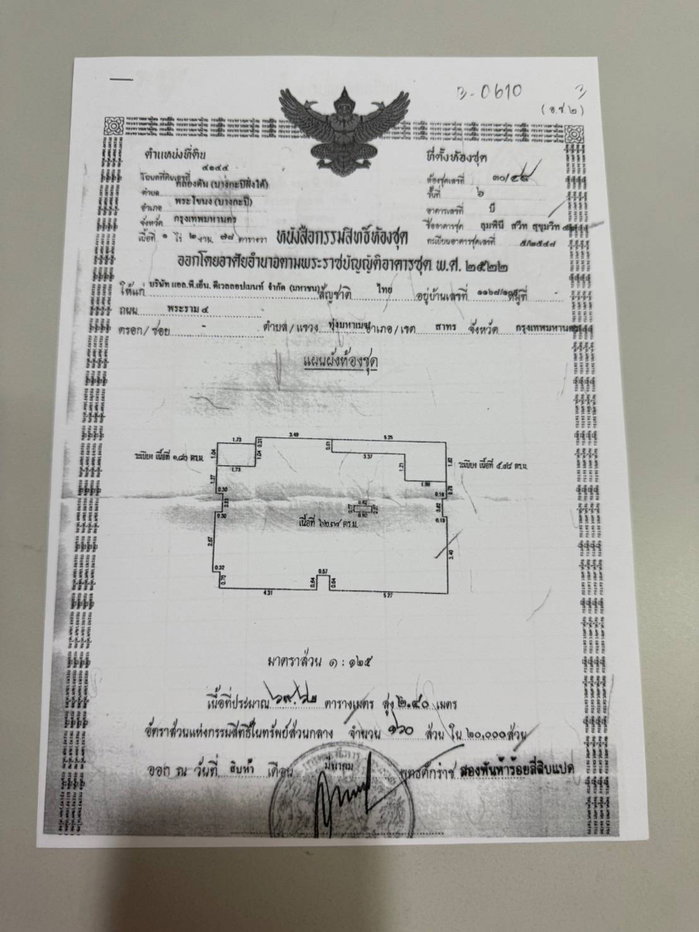 ว-0610
(อ.ช.๒)
ตำแหน่งที่ดิน
ที่ตั้งห้องชุด
โฉนดที่ดินเลขที่ ๔๑๔๔
ห้องชุดเลขที่ ๓๐/
ตำบล คลองตัน (บางกะปิฝั่งใต้)
ชั้นที่ ๖
อำเภอ พระโขนง (บางกะปิ)
อาคารเลขที่ บี
จังหวัด กรุงเทพมหานคร
ชื่ออาคารชุด ลุมพินี สวีท สุขุมวิท
เนื้อที่ ๑ ไร่ ๒ งาน ๗๘ ตารางวา
ทะเบียนอาคารชุดเลขที่ ๕/๒๕๔๗
หนังสือกรรมสิทธิ์ห้องชุด
ออกโดยอาศัยอำนาจตามพระราชบัญญัติอาคารชุด พ.ศ. ๒๕๒๒
ให้แก่ บริษัท แอล.พี.เอ็น. ดีเวลลอปเมนท์ จำกัด (มหาชน) สัญชาติ ไทย อยู่บ้านเลขที่ ๑๑๖๘/ หมู่ที่ -
ถนน พระราม ๔
ตรอก/ซอย - ตำบล/แขวง ทุ่งมหาเมฆ อำเภอ/เขต สาทร จังหวัด กรุงเทพมหานคร
แผนผังห้องชุด
1.73 0.31 3.49 5.25
1.04 1.04 0.51 3.37 1.71 1.62
ระเบียง เนื้อที่ ๑.๘๐ ตร.ม.
ระเบียง เนื้อที่ ๕.๔๘ ตร.ม.
1.73 1.88
0.30 0.18
0.30 0.82 0.19
เนื้อที่ ๖๒.๓๗ ตร.ม.
3.40
0.32
0.57
4.31 0.64 0.64 5.27
มาตราส่วน ๑ : ๑๒๕
เนื้อที่ประมาณ ตารางเมตร สูง ๒.๕๐ เมตร
อัตราส่วนแห่งกรรมสิทธิ์ในทรัพย์ส่วนกลาง จำนวน ๑๖๐ ส่วน ใน ๒๐,๐๐๐ ส่วน
ออก ณ วันที่ สิบห้า เดือน มีนาคม พุทธศักราช สองพันห้าร้อยสี่สิบแปด